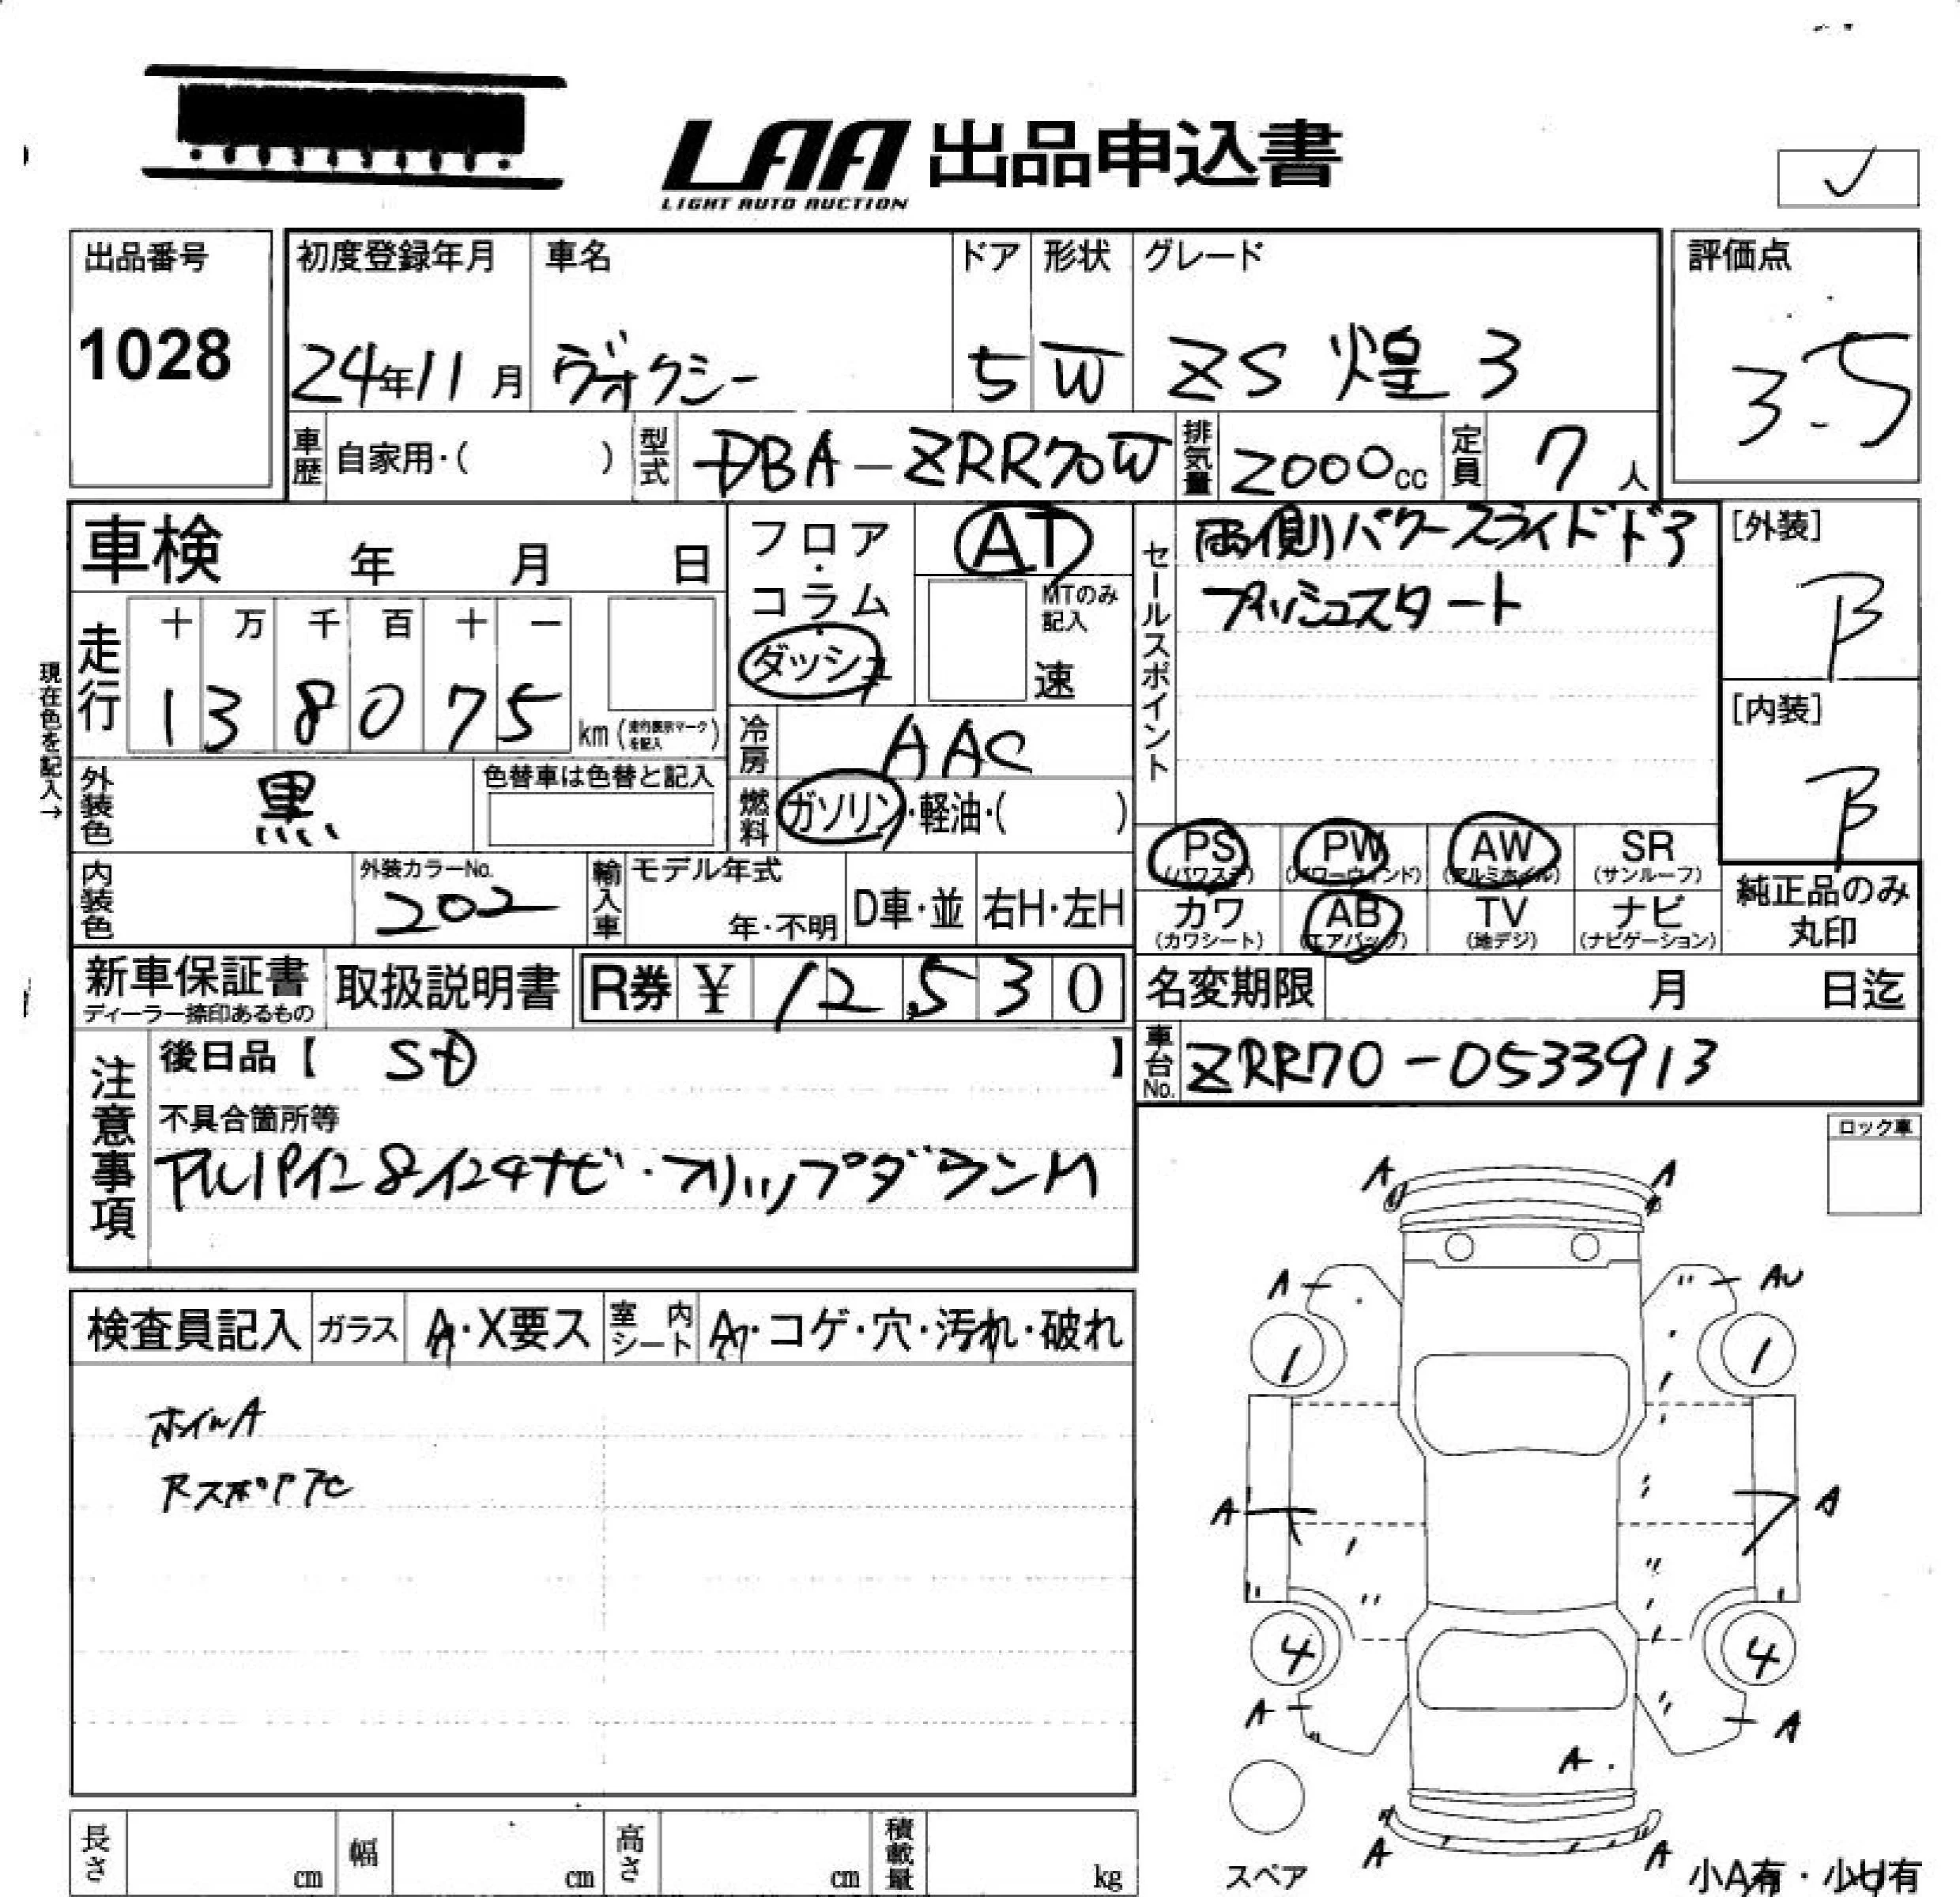 LAA 出品申込書
LIGHT AUTO AUCTION
出品番号
1028
初度登録年月
24年11月
車名
ヴォクシー
ドア
5
形状
W
グレード
ZS 煌 3
評価点
3.5
車歴 自家用・( )
型式 DBA-ZRR70W
排気量 2000cc
定員 7人
車検 年 月 日
走行
十 万 千 百 十 一
1 3 8 0 7 5
km (走行表示マークを記入)
現在色を記入→
外装色 黒
色替車は色替と記入
内装色
外装カラーNo.
202
フロア・コラム・ダッシュ
AT
MTのみ記入
速
冷房 AAC
燃料 ガソリン・軽油・( )
輸入車
モデル年式
年・不明
D車・並
右H・左H
セールスポイント
両側パワースライドドア
プッシュスタート
[外装]
B
[内装]
B
PS (パワステ)
PW (パワーウィンド)
AW (アルミホイル)
SR (サンルーフ)
カワ (カワシート)
AB (エアバッグ)
TV (地デジ)
ナビ (ナビゲーション)
純正品のみ丸印
新車保証書
ディーラー捺印あるもの
取扱説明書
R券 ¥ 12,530
名変期限 月 日迄
車台No. ZRR70-0533913
注意事項
後日品【 】
不具合箇所等
アルパイン8インチナビ・フリップダウンM
ロック車
検査員記入
ガラス A・X要ス
室内シート A・コゲ・穴・汚れ・破れ
ホイルA
A A
A AU
1 1
A A
4 4
A A
A
A A
スペア
小A有・小U有
長さ cm
幅 cm
高さ cm
積載量 kg